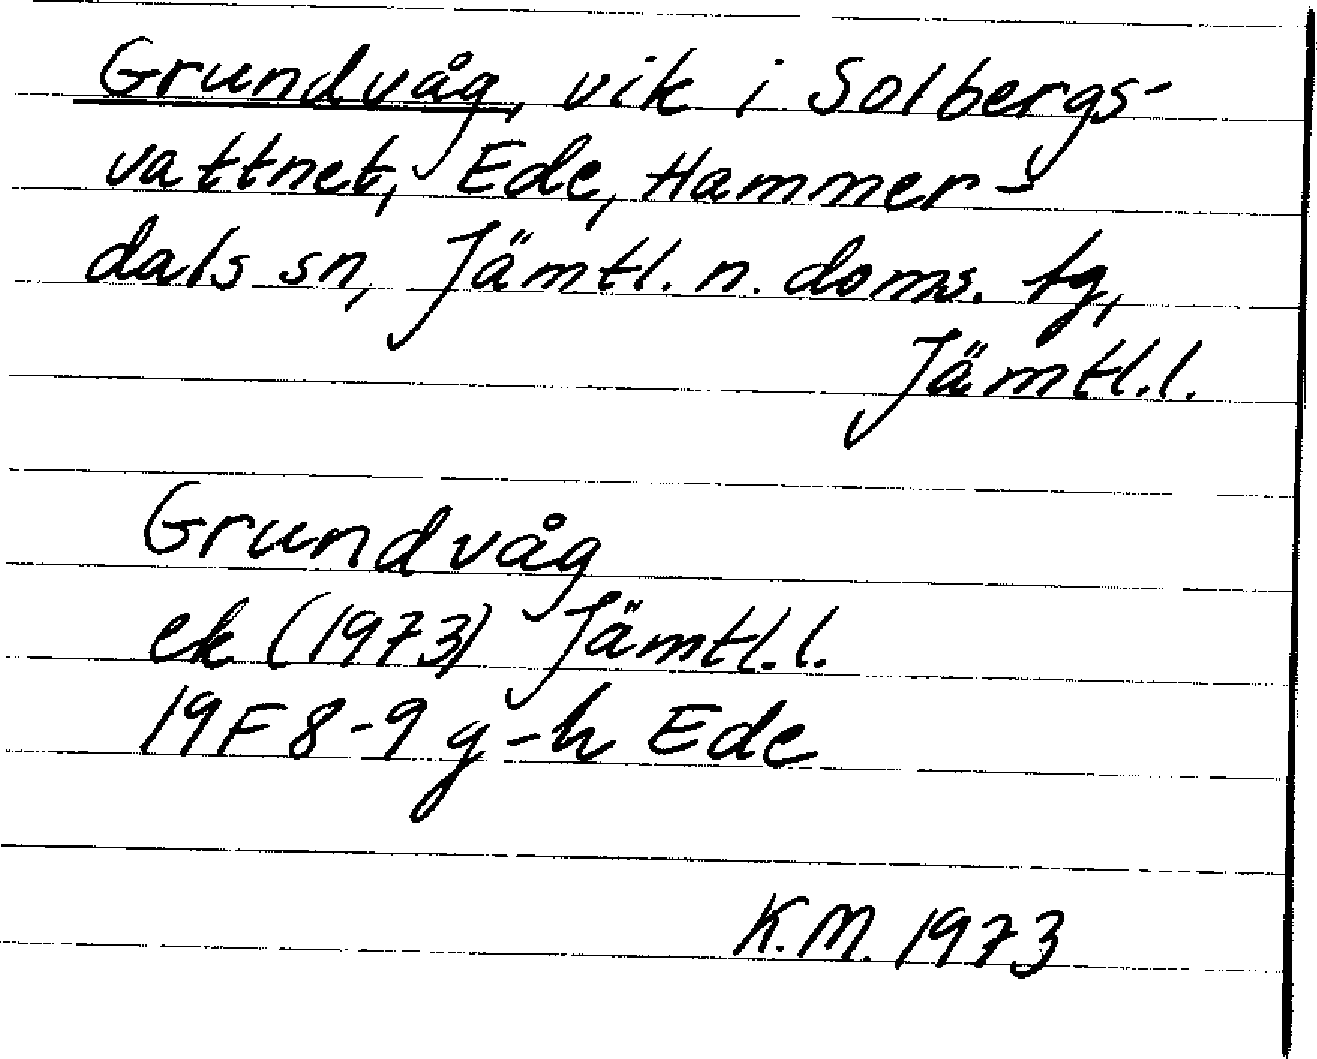 Grundvåg, vik i Solbergs-
vattnet, Ede, Hammer-
dals sn, Jämtl. n. doms. tg,
Jämtl.l.
Grundvåg
ek (1973) Jämtl.l.
19F 8-9 g-h Ede
K.M. 1973